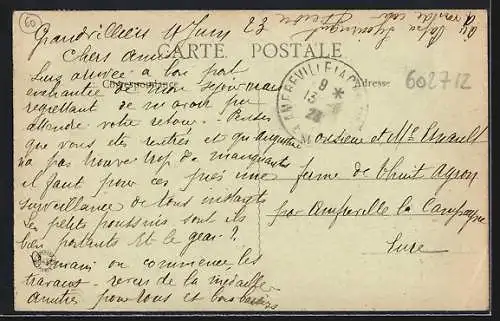 60
Grandvilliers 11 Juin 23
Chers Amis
CARTE POSTALE
Correspondance
Adresse
602712
AMFREVILLE LA
9 *
13
23
Suis arrivée à bon port
enchantée de mon séjour mais
regrettant de n'avoir pu
attendre votre retour. Pense
que vous êtes rentrés et qu'Augustine
n'a pas trouvé trop de manquants
il faut pour ces près une
surveillance de tous instants
Les petits poussins sont ils
bien portants Et le geai ?
Demain on commence les
travaux revers de la médaille
Amitiés pour tous et bons baisers
Monsieur et Mme
ferme de
par Amfreville la Campagne
Eure